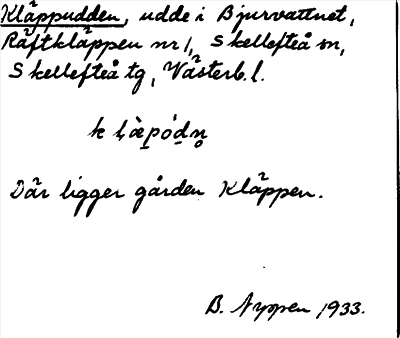 Kläppudden, udde i Bjurvattnet,
Räftkläppen nr 1, Skellefteå sn,
Skellefteå tg, Västerb. l.
Där ligger gården Kläppen.
B. Nyppen 1933.